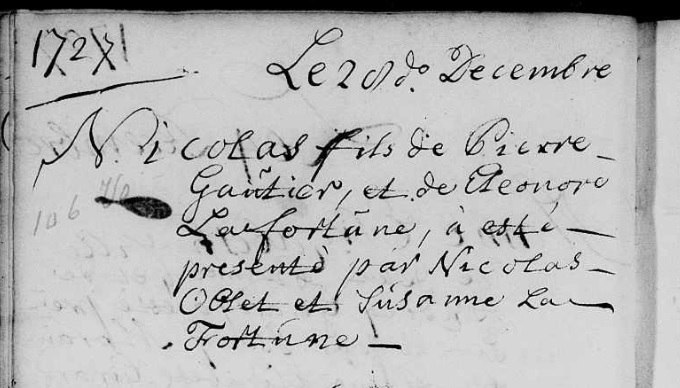 1727
Le 28 do. Decembre
Nicolas fils de Pierre
Gaŭtier, et de Eleonore
Lafortŭne, à esté
presenté par Nicolas
Oblet et Sŭsanne La
Fortŭne
106